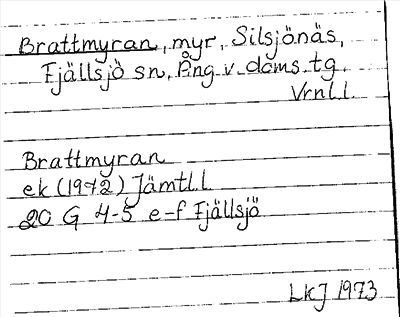 Brattmyran, myr, Silsjönäs,
Fjällsjö sn, Ång v. doms. tg.
Vrnl.l.
Brattmyran
ek (1972) Jämtl.l
20 G 4-5 e-f Fjällsjö
LKJ 1973